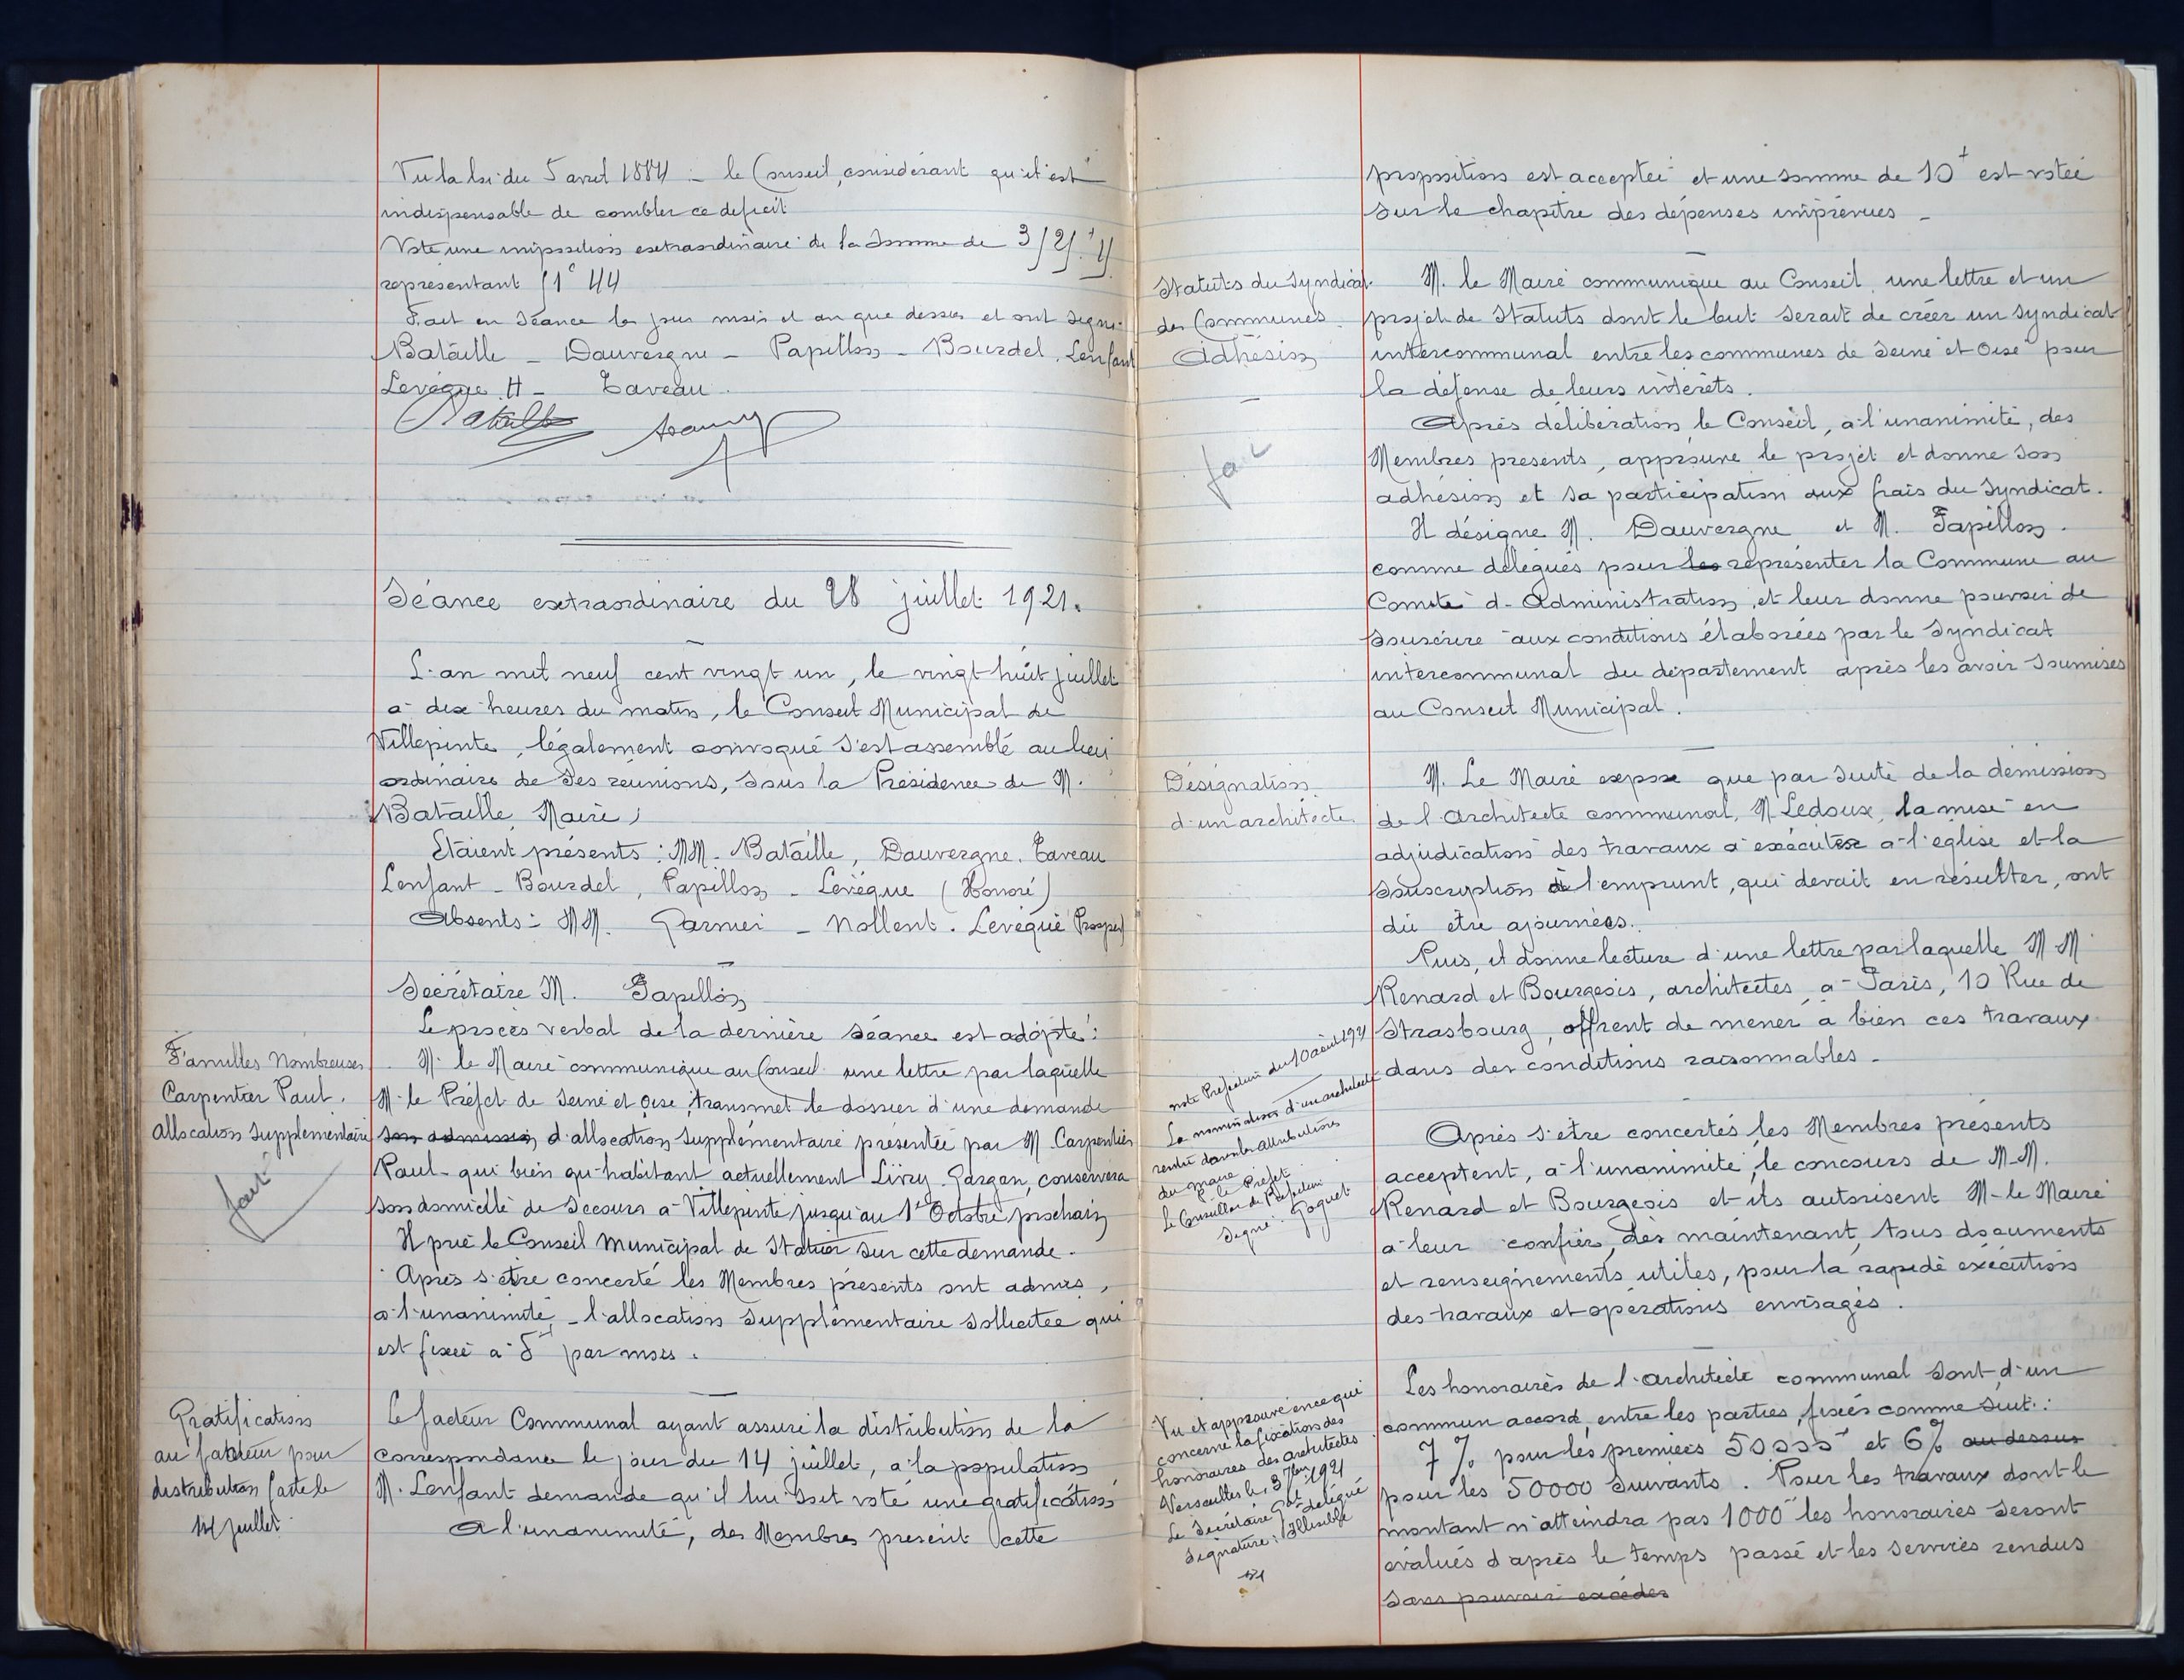 Vu la loi du 5 avril 1884 - le Conseil, considérant qu'il est
indispensable de combler ce deficit
Vote une imposition extraordinaire de la somme de
représentant 44
Fait en séance les jour mois et an que dessus et ont signé:
Bataille - Dauvergne - Papillon - Bourdel. Lenfant
Levêque H - Taveau.
Bataille
Séance extraordinaire du 28 juillet 1921.
L'an mil neuf cent vingt un, le vingt huit juillet
à dix heures du matin, le Conseil Municipal de
Villepinte, légalement convoqué s'est assemblé au lieu
ordinaire de ses réunions, sous la Présidence de M.
Bataille, Maire;
Etaient présents: MM. Bataille, Dauvergne. Taveau
Lenfant - Bourdel, Papillon - Levêque (Honoré)
Absents: MM. Garnier - Nollent. Levêque Prosper
Secrétaire M. Papillon
Le procès verbal de la dernière séance est adopté:
Familles Nombreuses
Carpentier Paul.
Allocation supplémentaire
fait
M. le Maire communique au Conseil une lettre par laquelle
M. le Préfet de Seine et Oise, transmet le dossier d'une demande
son admission d'allocation supplémentaire présentée par M. Carpentier
Paul - qui bien qu'habitant actuellement Livry-Gargan, conservera
son domicile de secours à Villepinte jusqu'au 1er Octobre prochain
Il prie le Conseil Municipal de Statuer sur cette demande.
Après s'être concerté les Membres présents ont admis,
à l'unanimité, - l'allocation supplémentaire sollicitée qui
est fixée à 5f par mois.
Gratification
au facteur pour
distribution faite le
14 juillet
Le facteur Communal ayant assuré la distribution de la
correspondance le jour du 14 juillet, à la population
M. Lenfant demande qu'il lui soit voté une gratification
A l'unanimité, des Membres présent cette
proposition est acceptée et une somme de 10f est votée
sur le chapitre des dépenses imprévues -
Statuts du Syndicat
des Communes.
Adhésion
fait
M. le Maire communique au Conseil une lettre et un
projet de Statuts dont le but serait de créer un syndicat
intercommunal entre les communes de Seine et Oise pour
la défense de leurs intérêts.
Après délibération, le Conseil, à l'unanimité, des
Membres présents, approuve le projet et donne son
adhésion et sa participation aux frais du Syndicat.
Il désigne M. Dauvergne et M. Papillon.
comme délégués pour les représenter la Commune au
Comité d'Administration, et leur donne pouvoir de
souscrire aux conditions élaborées par le Syndicat
intercommunal du département après les avoir soumises
au Conseil Municipal.
Désignation
d'un architecte.
M. Le Maire expose que par suite de la démission
de l'Architecte communal, M Ledoux, la mise en
adjudication des travaux à exécuter à l'église et la
souscription à l'emprunt, qui devait en résulter, ont
dû être ajournées.
Puis, il donne lecture d'une lettre par laquelle M.M.
Renard et Bourgeois, architectes, à Paris, 10 Rue de
Strasbourg, offrent de mener à bien ces travaux
dans des conditions raisonnables -
note Préfecture du 10 août 1921
La nomination d'un architecte
rentre dans les attributions
du maire
P. le Préfet
Le Conseiller de Préfecture
Signé: Goguet
Après s'être concertés, les Membres présents
acceptent, à l'unanimité, le concours de M.M.
Renard et Bourgeois et ils autorisent M. le Maire
à leur confier, dès maintenant, tous documents
et renseignements utiles, pour la rapide exécution
des travaux et opérations envisagés.
Vu et approuvé en ce qui
concerne la fixation des
honoraires des architectes
Versailles le, 3 7bre 1921
Le Secrétaire Gal délégué
Signature: Illisible
Les honoraires de l'architecte communal sont d'un
commun accord, entre les parties, fixés comme suit:
7% pour les premiers 50000f et 6% au dessus
pour les 50000 suivants. Pour les travaux dont le
montant n'atteindra pas 1000f les honoraires seront
évalués d'après le temps passé et les services rendus
sans pouvoir excéder